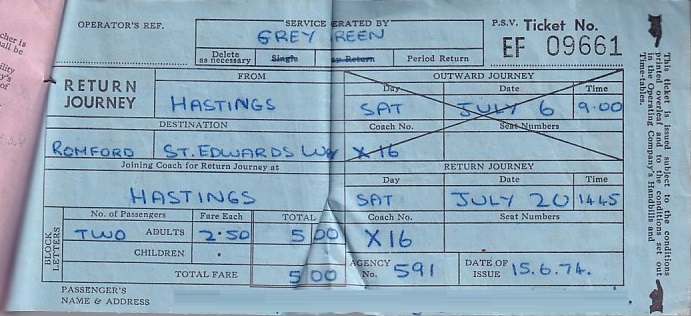 OPERATOR'S REF.
SERVICE ERATED BY
GREY REEN
P.S.V. Ticket No.
EF 09661
Delete as necessary Single Day Return Period Return
RETURN JOURNEY
FROM
HASTINGS
OUTWARD JOURNEY
Day Date Time
SAT JULY 6 9.00
DESTINATION
ROMFORD ST. EDWARDS WAY
Coach No. Seat Numbers
X16
Joining Coach for Return Journey at
HASTINGS
RETURN JOURNEY
Day Date Time
SAT JULY 20 1445
BLOCK LETTERS
No. of Passengers Fare Each TOTAL
TWO ADULTS 2.50 5 00
CHILDREN .
TOTAL FARE 5 00
Coach No. Seat Numbers
X16
AGENCY No. 591
DATE OF ISSUE 15.6.74.
PASSENGER'S
NAME & ADDRESS
This ticket is issued subject to the conditions
printed overleaf and to the conditions set out
in the Operating Company's Handbills and
Time-tables.